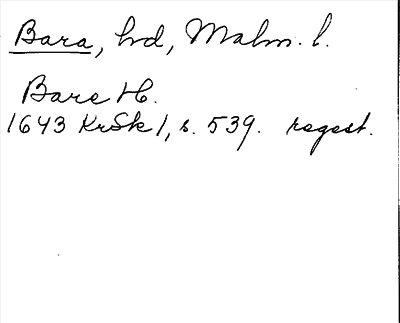 Bara, hd, Malm. l.
Bare H.
1643 KrSk 1, s. 539. regest.